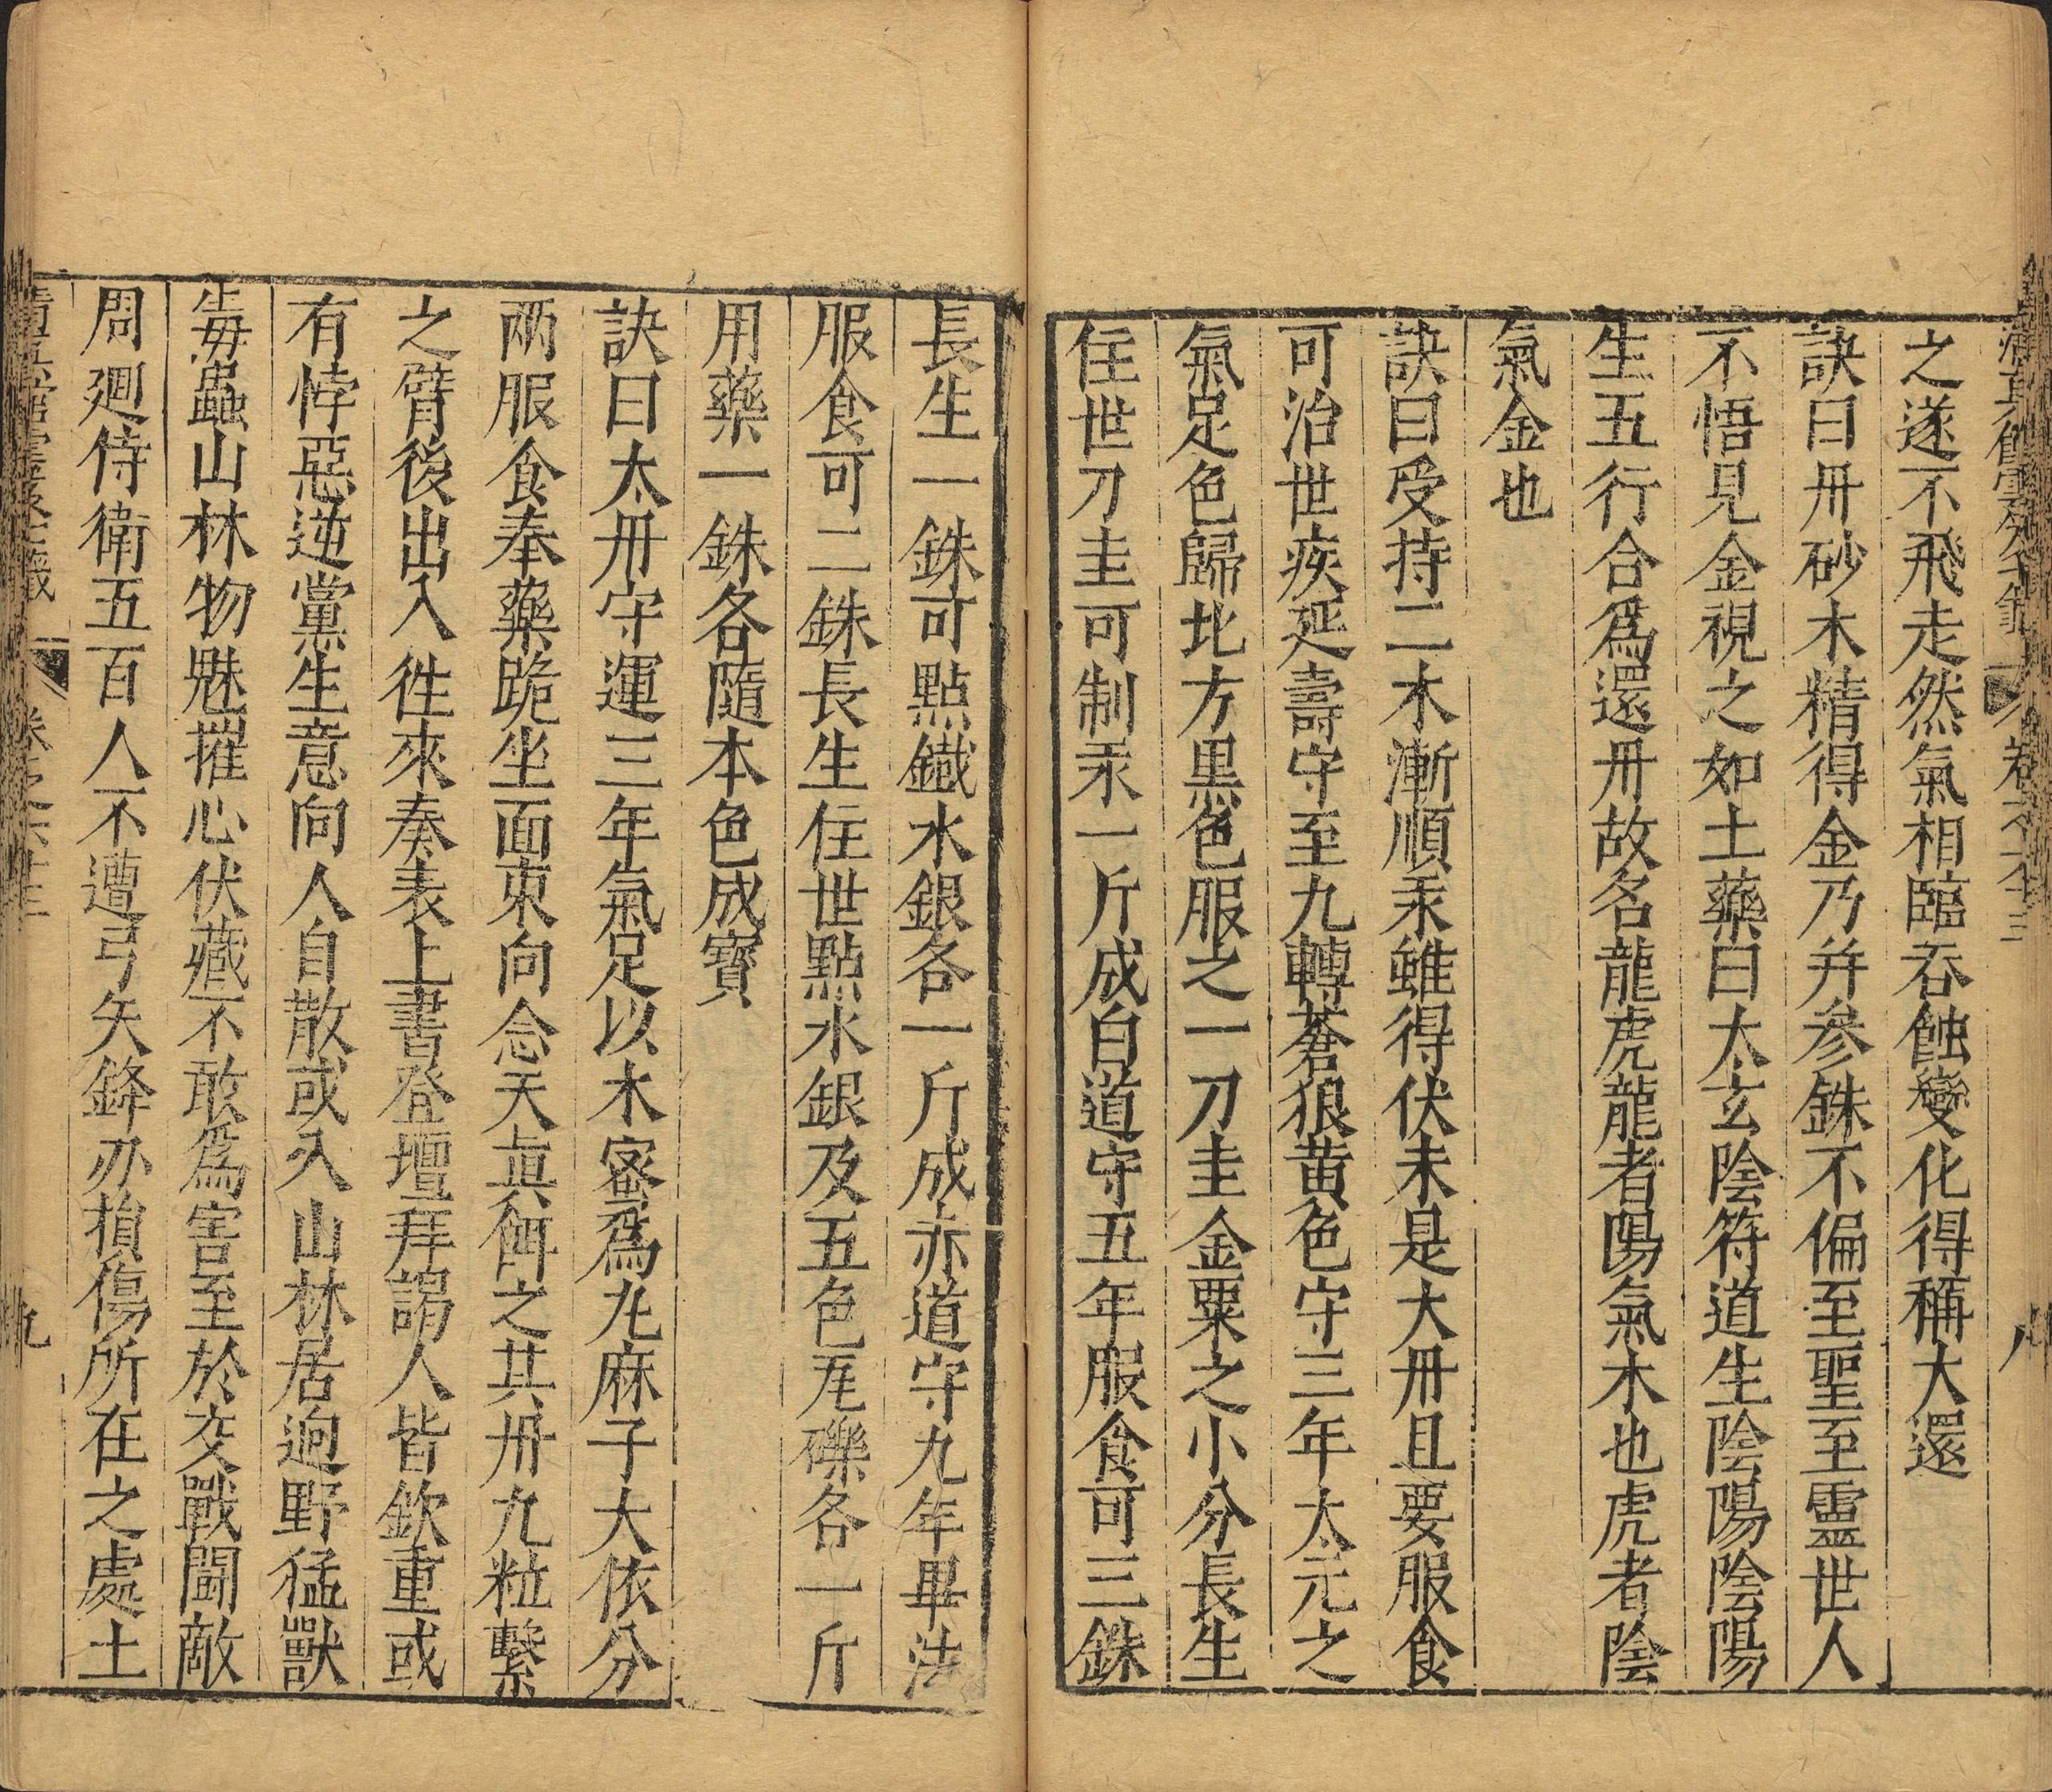 之遂不飛走然氣相臨吞蝕變化得稱大還
訣曰丹砂木精得金乃并參銖不偏至聖至靈世人
不悟見金視之如土藥曰太玄陰符道生陰陽陰陽
生五行合爲還丹故名龍虎龍者陽氣木也虎者陰
氣金也
訣曰受持二木漸順汞雖得伏未是大丹且要服食
可治世疾延壽守至九轉蒼狼黄色守三年太元之
氣足色歸北方黒色服之一刀圭金粟之小分長生
住世刀圭可制汞一斤成白道守五年服食可三銖
長生一銖可點鐵水銀各一斤成赤道守九年畢法
服食可二銖長生住世點水銀及五色瓦礫各一斤
用藥一銖各隨本色成寶
訣曰太丹守運三年氣足以木蜜爲丸麻子大依分
两服食奉藥跪坐面東向念天眞餌之其丹九粒繫
之臂後出入徃來奏表上書登壇拜謁人皆欽重或
有悖惡逆黨生意向人自散或入山林居迥野猛獸
毒蟲山林物魅摧心伏藏不敢爲害至於交戰鬪敵
周迴侍衛五百人不遭弓矢鋒刅損傷所在之處土
卷之六十三
九
卷之六十三
八